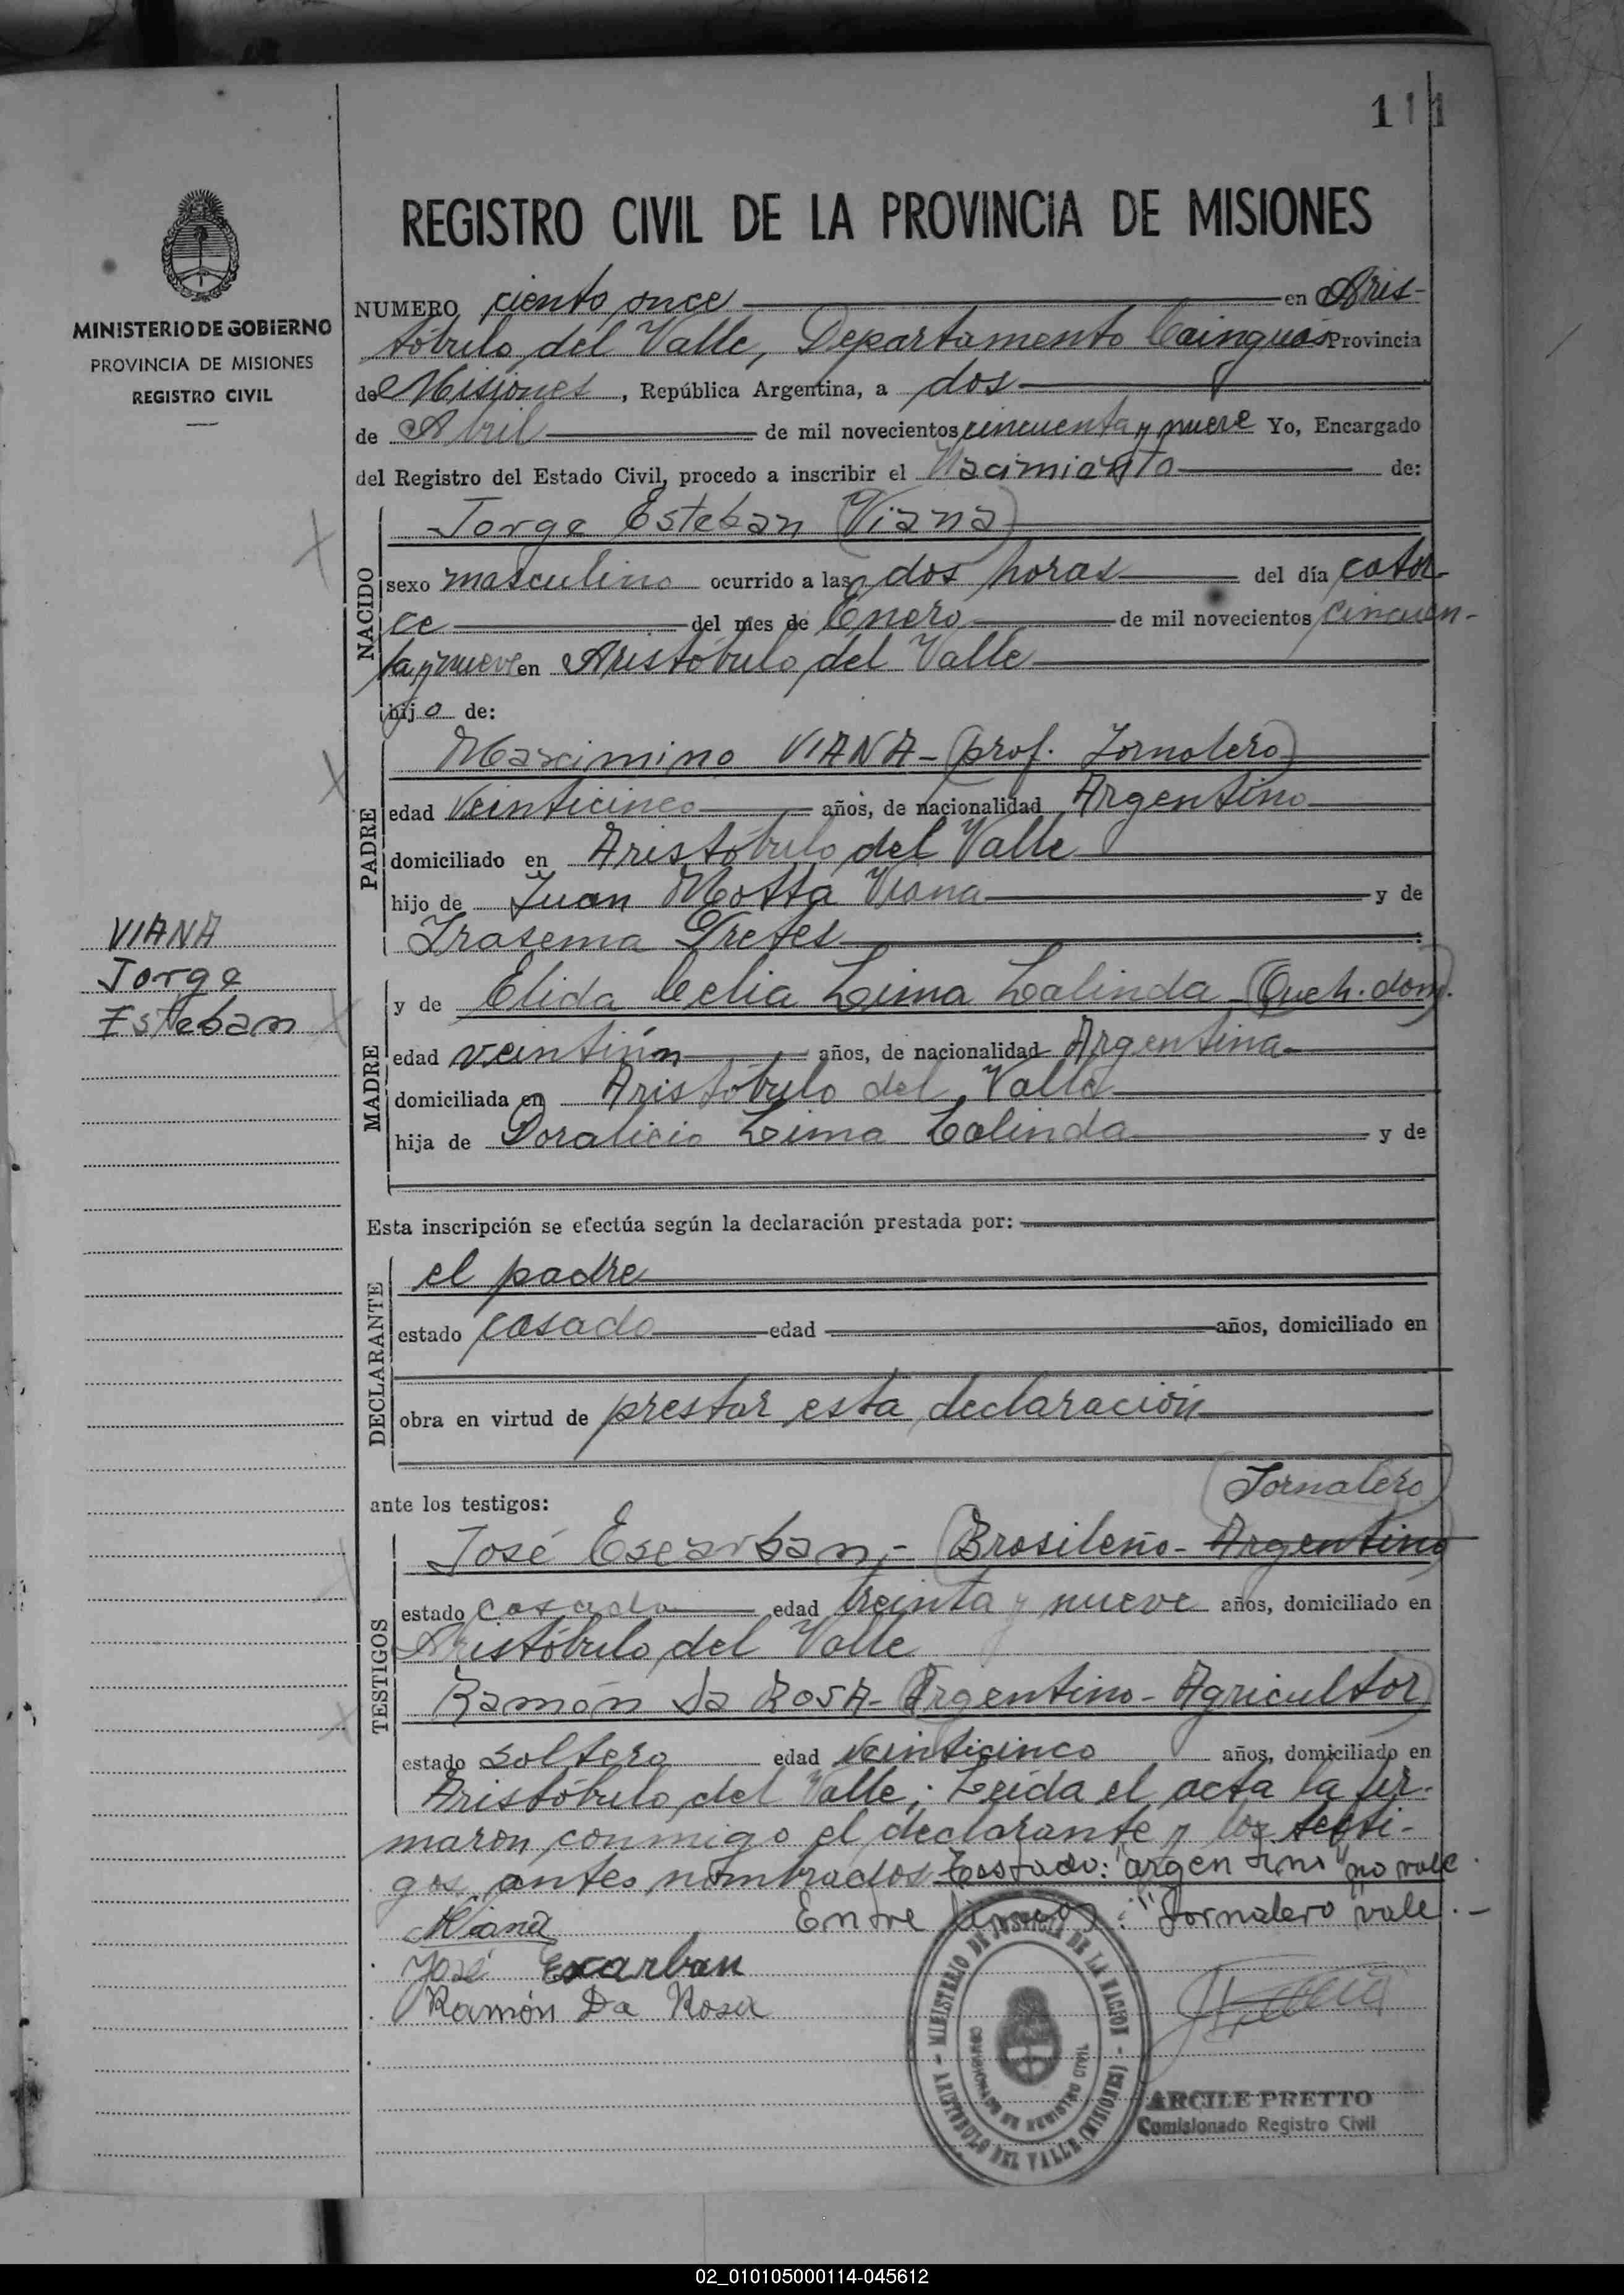 111
REGISTRO CIVIL DE LA PROVINCIA DE MISIONES
MINISTERIO DE GOBIERNO
PROVINCIA DE MISIONES
REGISTRO CIVIL
NUMERO ciento once en Aris-
tóbulo del Valle, Departamento Cainguás Provincia
de Misiones, República Argentina, a dos
de Abril de mil novecientos cincuenta y nueve Yo, Encargado
del Registro del Estado Civil, procedo a inscribir el Nacimiento de:
NACIDO
Jorge Esteban (Viana)
sexo masculino ocurrido a las dos horas del día cator-
ce del mes de Enero de mil novecientos cincuen-
ta y nueve en Aristóbulo del Valle
hijo de:
PADRE
Marcimino VIANA - (prof. Jornalero)
edad veinticinco años, de nacionalidad Argentino
domiciliado en Aristóbulo del Valle
hijo de Juan Motta Viana y de
Irasema
VIANA
Jorge
Esteban
MADRE
y de Elida Celia Lima Lalinda - (Queh. dom).
edad veintiún años, de nacionalidad Argentina
domiciliada en Aristóbulo del Valle
hija de Doralicio Lima y de
Esta inscripción se efectúa según la declaración prestada por:
DECLARANTE
el padre
estado casado edad años, domiciliado en
obra en virtud de prestar esta declaración
(Jornalero)
ante los testigos:
TESTIGOS
José Escarban,- (Brasileño - Argentino
estado casado edad treinta y nueve años, domiciliado en
Aristóbulo del Valle
Ramón Da ROSA - (Argentino - Agricultor)
estado soltero edad veinticinco años, domiciliado en
Aristóbulo del Valle; Leída el acta la fir-
maron conmigo el declarante y los testi-
gos antes nombrados. Testado: "argentino" no vale.
MViana Entre líneas: "Jornalero" vale.-
José Escarban
Ramón Da Rosa
MINISTERIO DE JUSTICIA DE LA NACION
COMISIONADO DE REGISTRO CIVIL
ARISTOBULO DEL VALLE (MISIONES)
ARCILE PRETTO
Comisionado Registro Civil
02_010105000114-045612